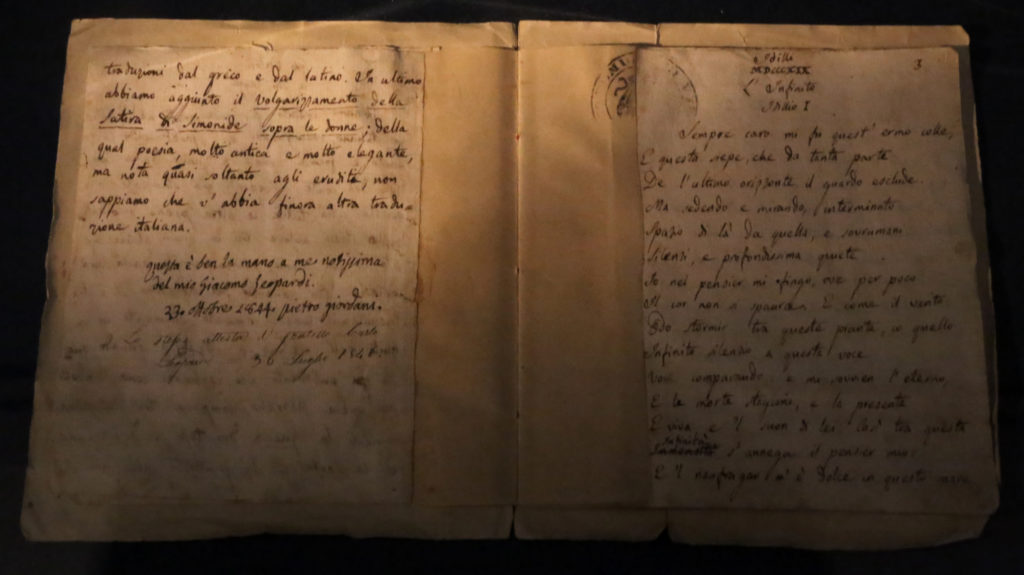 traduzioni dal greco e dal latino. In ultimo
abbiamo aggiunto il volgarizzamento della
Satira di Simonide sopra le donne; della
qual poesia, molto antica e molto elegante,
ma nota quasi soltanto agli eruditi, non
sappiamo che v'abbia finora altra tradu=
zione italiana.
questa è ben la mano a me notissima
del mio Giacomo Leopardi.
23. ottobre 1844. pietro giordani.
Lo stesso attesta il fratello Carlo
Luglio 1846
3
Idillio
MDCCCXIX
L'Infinito
Idillio I
Sempre caro mi fu quest'ermo colle,
E questa sepe, che da tanta parte
De l'ultimo orizzonte il guardo esclude.
Ma sedendo e mirando, interminato
Spazio di là da quella, e sovrumani
Silenzi, e profondissima quiete
Io nel pensier mi fingo, ove per poco
Il cor non si spaura. E come il vento
Odo stormir tra queste piante, io quello
Infinito silenzio a questa voce
Vo comparando: e mi sovvien l'eterno,
E le morte stagioni, e la presente
E viva, e 'l suon di lei. Così tra questa
Immensità s'annega il pensier mio:
E 'l naufragar m'è dolce in questo mare.